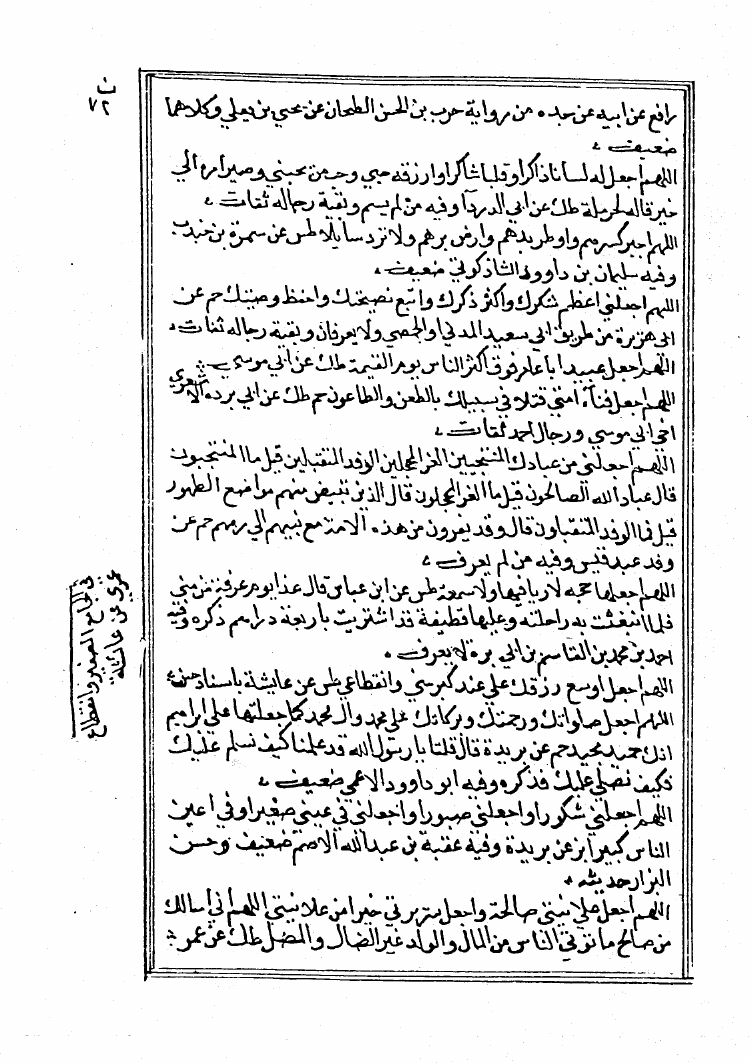 ن
٧٢
رافع عن ابيه عن جده من رواية حرب بن الحسن الطحان عن يحيى بن يعلي وكلاهما
ضعيف
اللهم اجعل له لسانا ذاكرا وقلبا شاكرا وارزقه حبي وحب من يحبني وصير امره الي
خير قاله لحرملة طك عن ابي الدردا وفيه من لم يسم وبقية رجاله ثقات
اللهم اجبر كسرهم واو طريدهم وارض برهم ولا ترد سايلا طس عن سمرة بن جندب
وفيه سليمان بن داوود الشاذكوني ضعيف
اللهم اجعلني اعظم شكرك واكثر ذكرك واتبع نصيحتك واحفظ وصيتك حم عن
ابي هريرة من طريق ابي سعيد المدني والحمصي ولا يعرفان وبقية رجاله ثقات
اللهم اجعل عبيدا ابا عامر فوق اكثر الناس يوم القيمة طك عن ابي موسي
اللهم اجعل فناء امتي قتلا في سبيلك بالطعن والطاعون حم طك عن ابي بردة الاشعري
اخي ابي موسي ورجال احمد ثقات
اللهم اجعلني من عبادك المنتجبين الغر المحجلين الوفد المتقبلين قيل ما المنتجبون
قال عباد الله الصالحون قيل ما الغر المحجلون قال الذين تبيض منهم مواضع الطهور
قيل فما الوفد المتقبلون قال وفد يفرون من هذه الامة مع نبيهم الي ربهم حم عن
وفد عبد قيس وفيه من لم يعرف
اللهم اجعلها حجه لا ريا فيها ولا سمعة طس عن ابن عباس قال غدا يوم عرفة من مني
فلما انبعثت به راحلته وعليها قطيفة قد اشتريت باربعة دراهم ذكره وفيه
احمد بن محمد بن القاسم بن ابي بزة لا يعرف
اللهم اجعل اوسع رزقك علي عند كبر سني وانقطاعي طس عن عايشة باسناد حسن
اللهم اجعل صلواتك ورحمتك وبركاتك علي محمد وال محمد كما جعلتها علي ابراهيم
انك حميد مجيد حم عن بريدة قال قلنا يا رسول الله قد علمنا كيف نسلم عليك
فكيف نصلي عليك فذكره وفيه ابو داوود الاعمي ضعيف
اللهم اجعلني شكورا واجعلني صبورا واجعلني في عيني صغيرا وفي اعين
الناس كبيرا بز عن بريدة وفيه عقبة بن عبد الله الاصم ضعيف وحسن
البزار حديثه
اللهم اجعل علانيتي صالحة واجعل سريرتي خيرا من علانيتي اللهم اني اسالك
من صالح ما توتي الناس من المال والولد غير الضال والمضل طك عن عمر
في الجامع الصغير وانقطاع
عمري عن عائشة